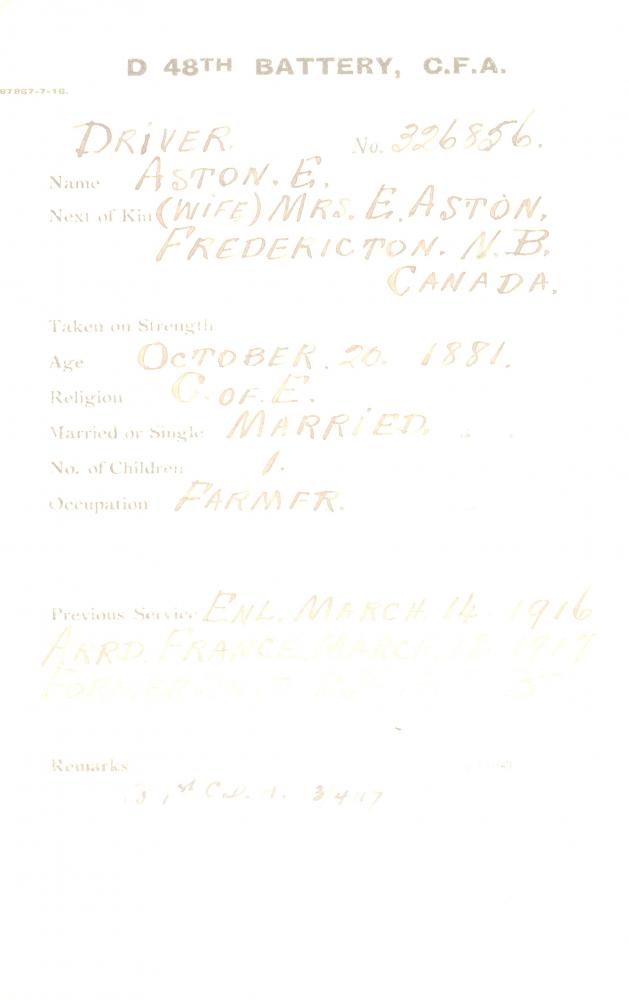 D 48TH BATTERY, C.F.A.
87867-7-16.
DRIVER. No. 326856.
Name ASTON. E.
Next of Kin (WIFE) MRS. E. ASTON,
FREDERICTON. N. B.
CANADA.
Taken on Strength
Age OCTOBER. 20. 1881.
Religion C. OF. E.
Married or Single MARRIED.
No. of Children 1.
Occupation FARMER.
Previous Service ENL. MARCH. 14. 1916
ARRD. FRANCE MARCH. 12. 1917
FORMER
Remarks
1st C.D.A. 3/4/17